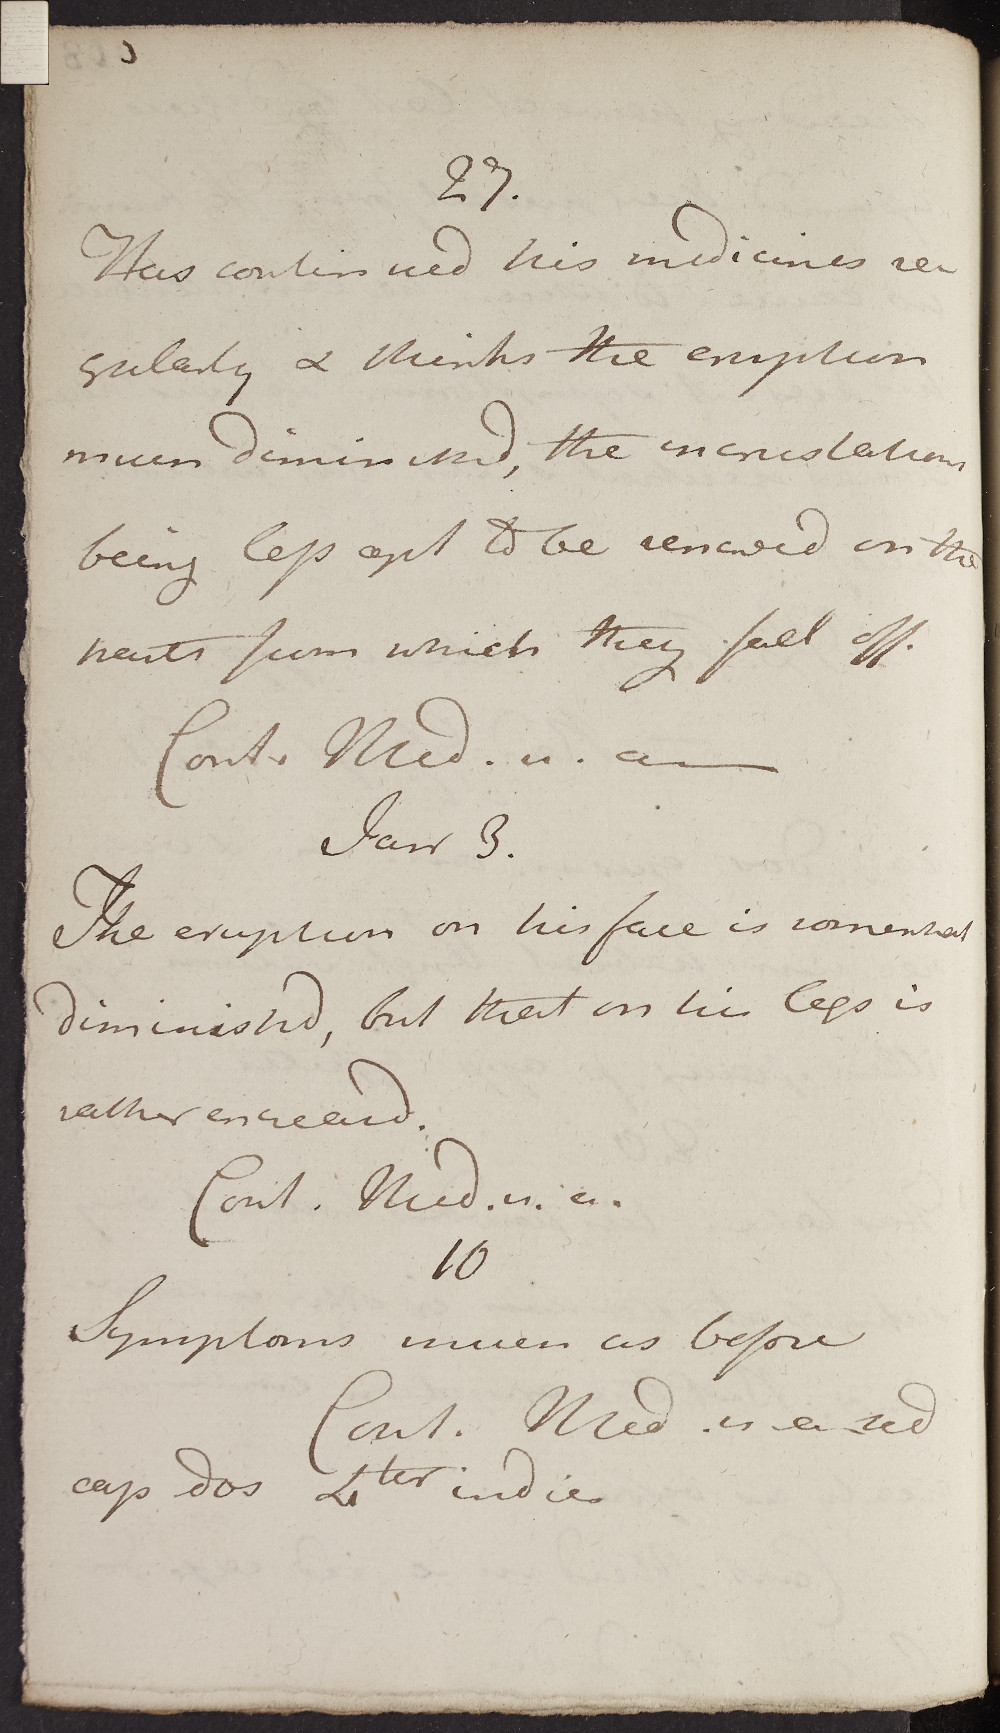 27.
Has continued his medicines re
gularly & thinks the eruption
much diminished, the incrustations
being less apt to be renewed on the
parts from which they fall off.
Cont. Med. u. a
Janr 3.
The eruption on his face is somewhat
diminished, but that on his legs is
rather encreased.
Cont. Med. u. a.
10
Symptoms much as before
Cont. Med. u a sed
cap dos 4ter indies